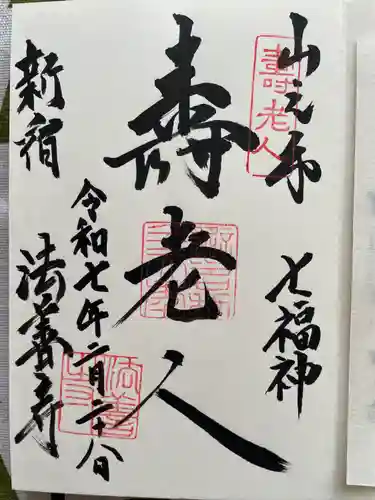 山之手
七福神
壽老人
令和七年二月二十八日
新宿
法善寺
壽老人